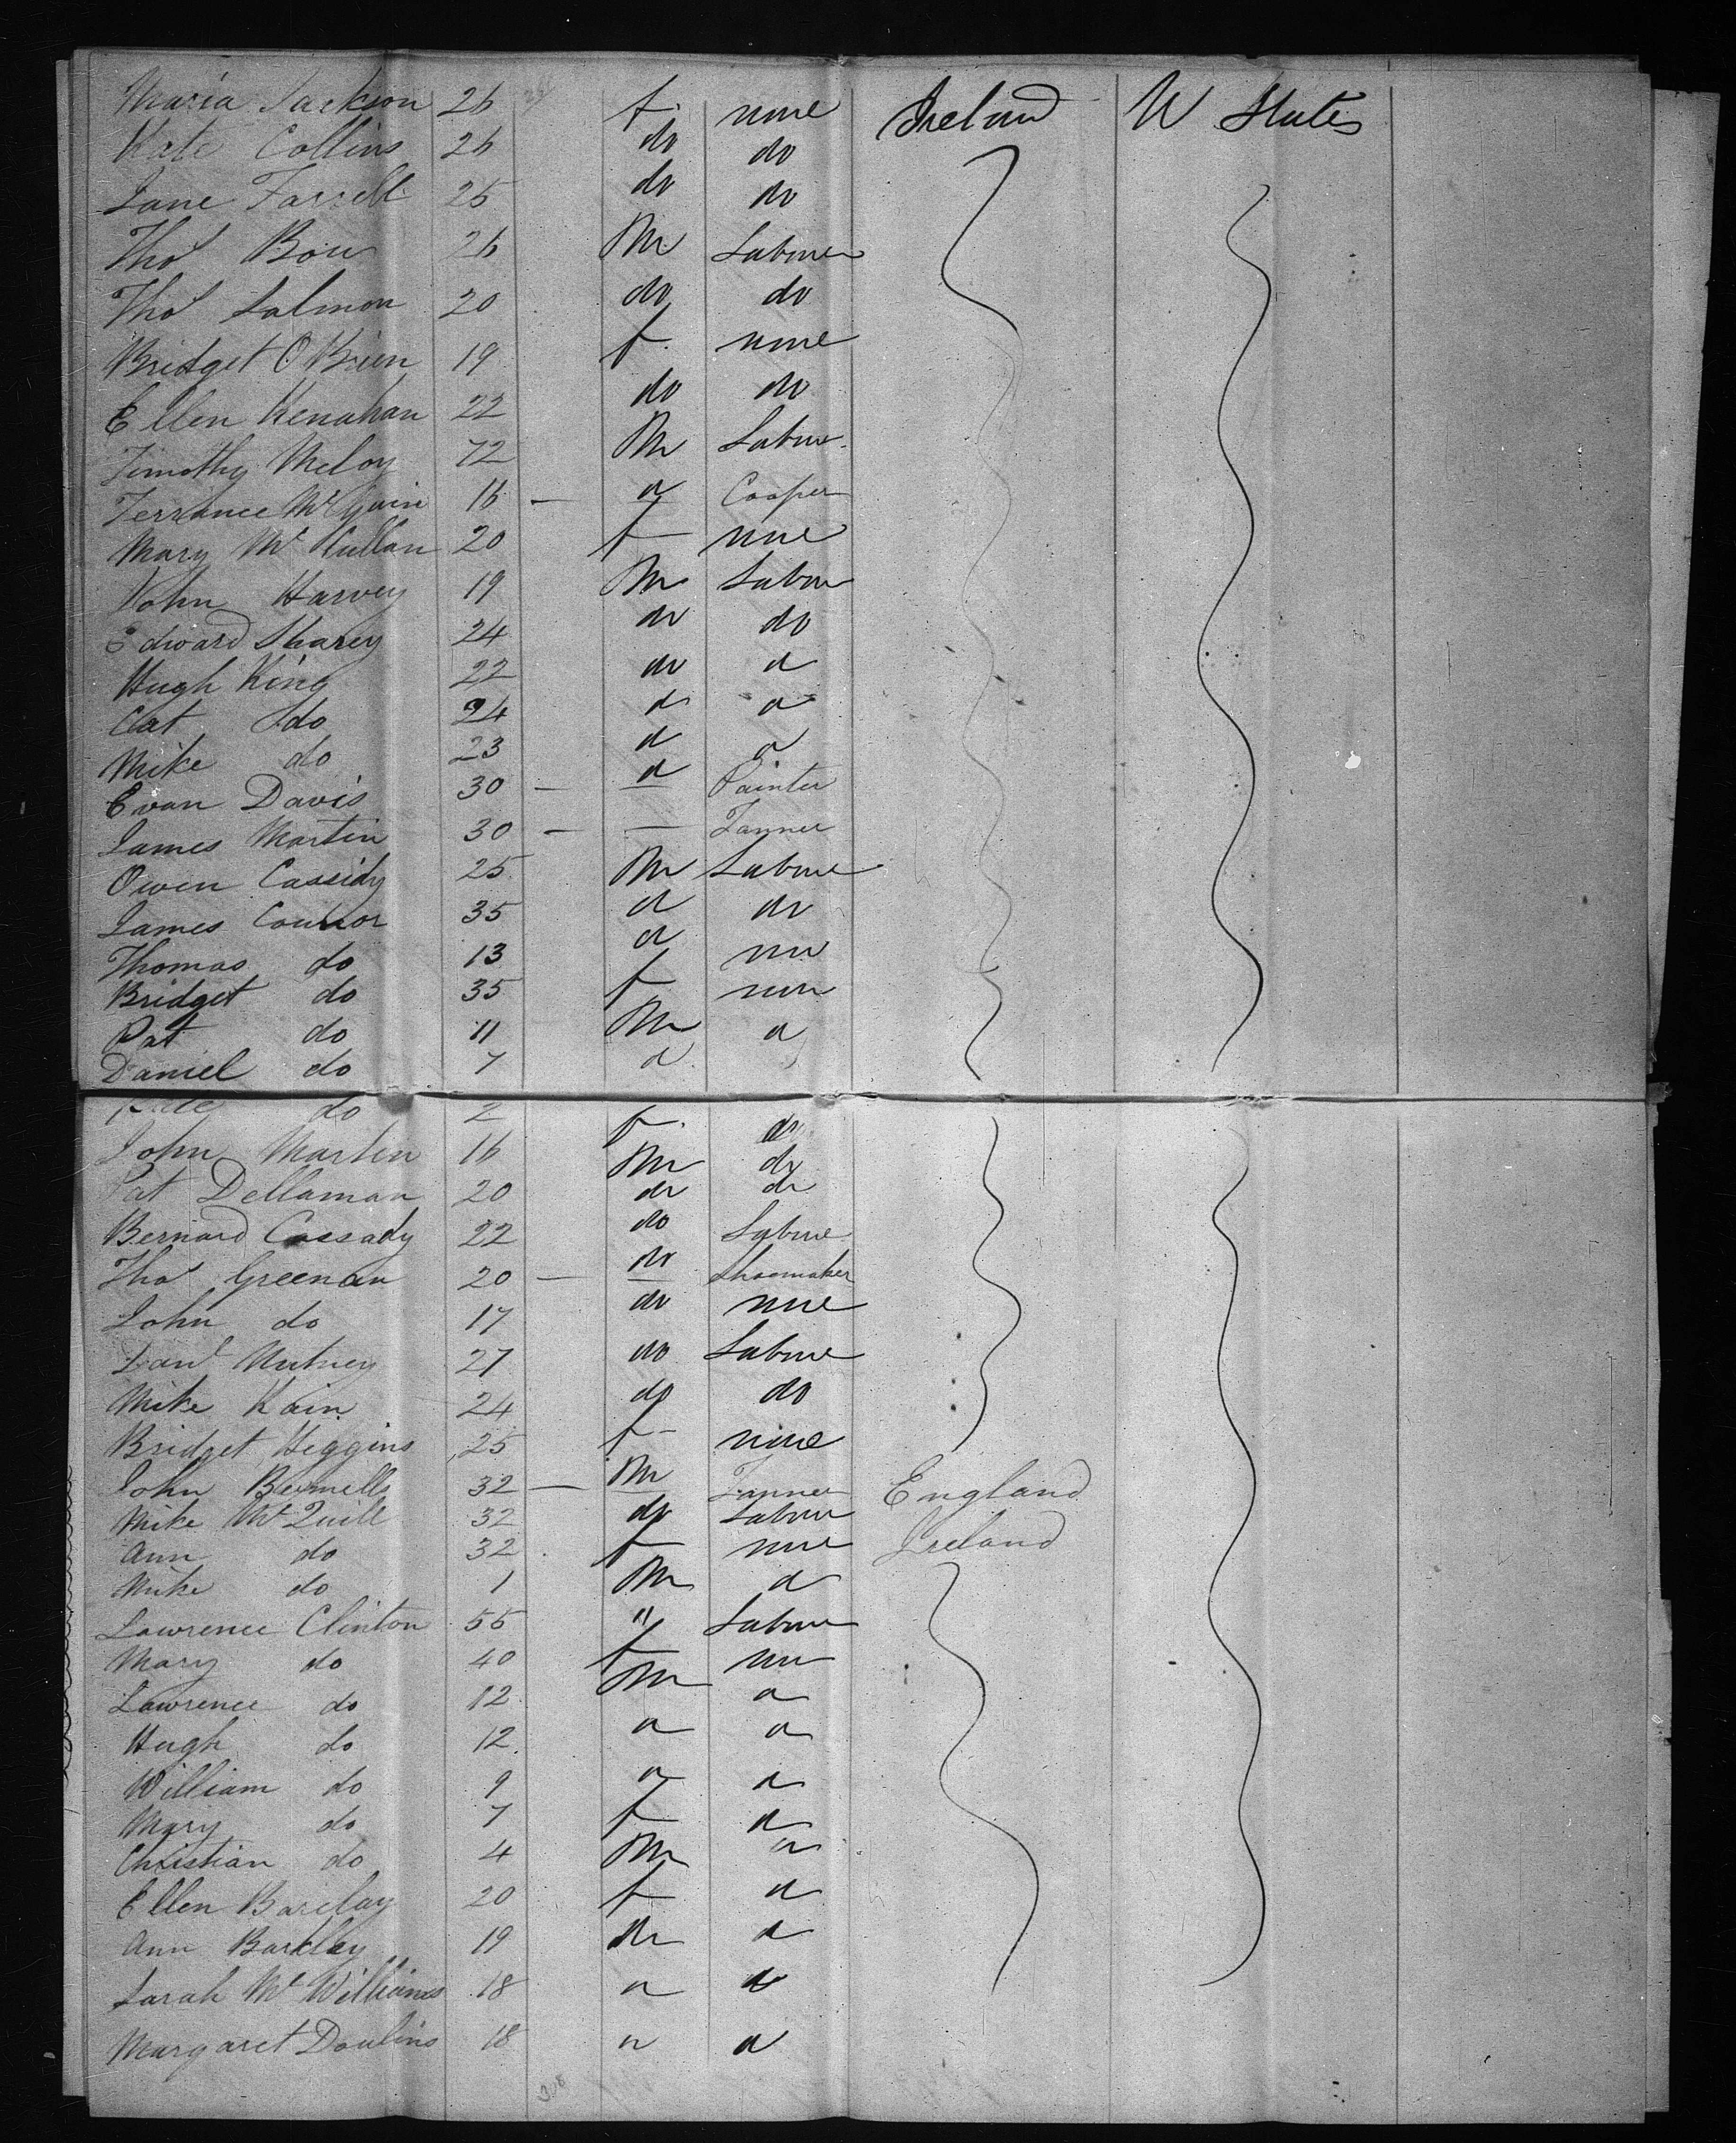 Maria Jackson 26 f. none Ireland U States
Kate Collins 26 do do
Jane Farrell 25 do do
Thos Bow 26 M Labourer
Thos Salmon 20 do do
Bridget O'Brien 19 f. none
Ellen Kenahan 22 do do
Timothy Meloy 72 M Labour
Terrance McGuin 16 — d Cooper
Mary Mc Cullan 20 f none
John Harvey 19 M Labour
Edward Sharey 24 do do
Hugh King 22 do d
Cat do 24 d d
Mike do 23 d d
Evan Davis 30 — d Painter
James Martin 30 — — Tanner
Owen Cassidy 25 M Laboure
James Connor 35 d do
Thomas do 13 d non
Bridget do 35 f non
Pat do 11 M d
Daniel do 7 d
do 2 f. do
John Martin 16 M do
Pat Dellaman 20 do do
Bernard Cassady 22 do Laboure
Thos Greenan 20 — do Shoemaker
John do 17 do none
27 do Laboure
Mike Kain 24 do do
Bridget Higgins 25 f none
John 32 — M Tanner England
Mike McQuill 32 do Labour Ireland
Ann do 32 f none
Mike do 1 M d
Lawrence Clinton 55 " Labour
Mary do 40 f non
Lawrence do 12 M d
Hugh do 12 d d
William do 9 d d
Mary do 7 f d
Christian do 4 M d
Ellen Barclay 20 f d
Ann Barklay 19 do d
Sarah Mc Williams 18 d d
Margaret Doulins 18 d d